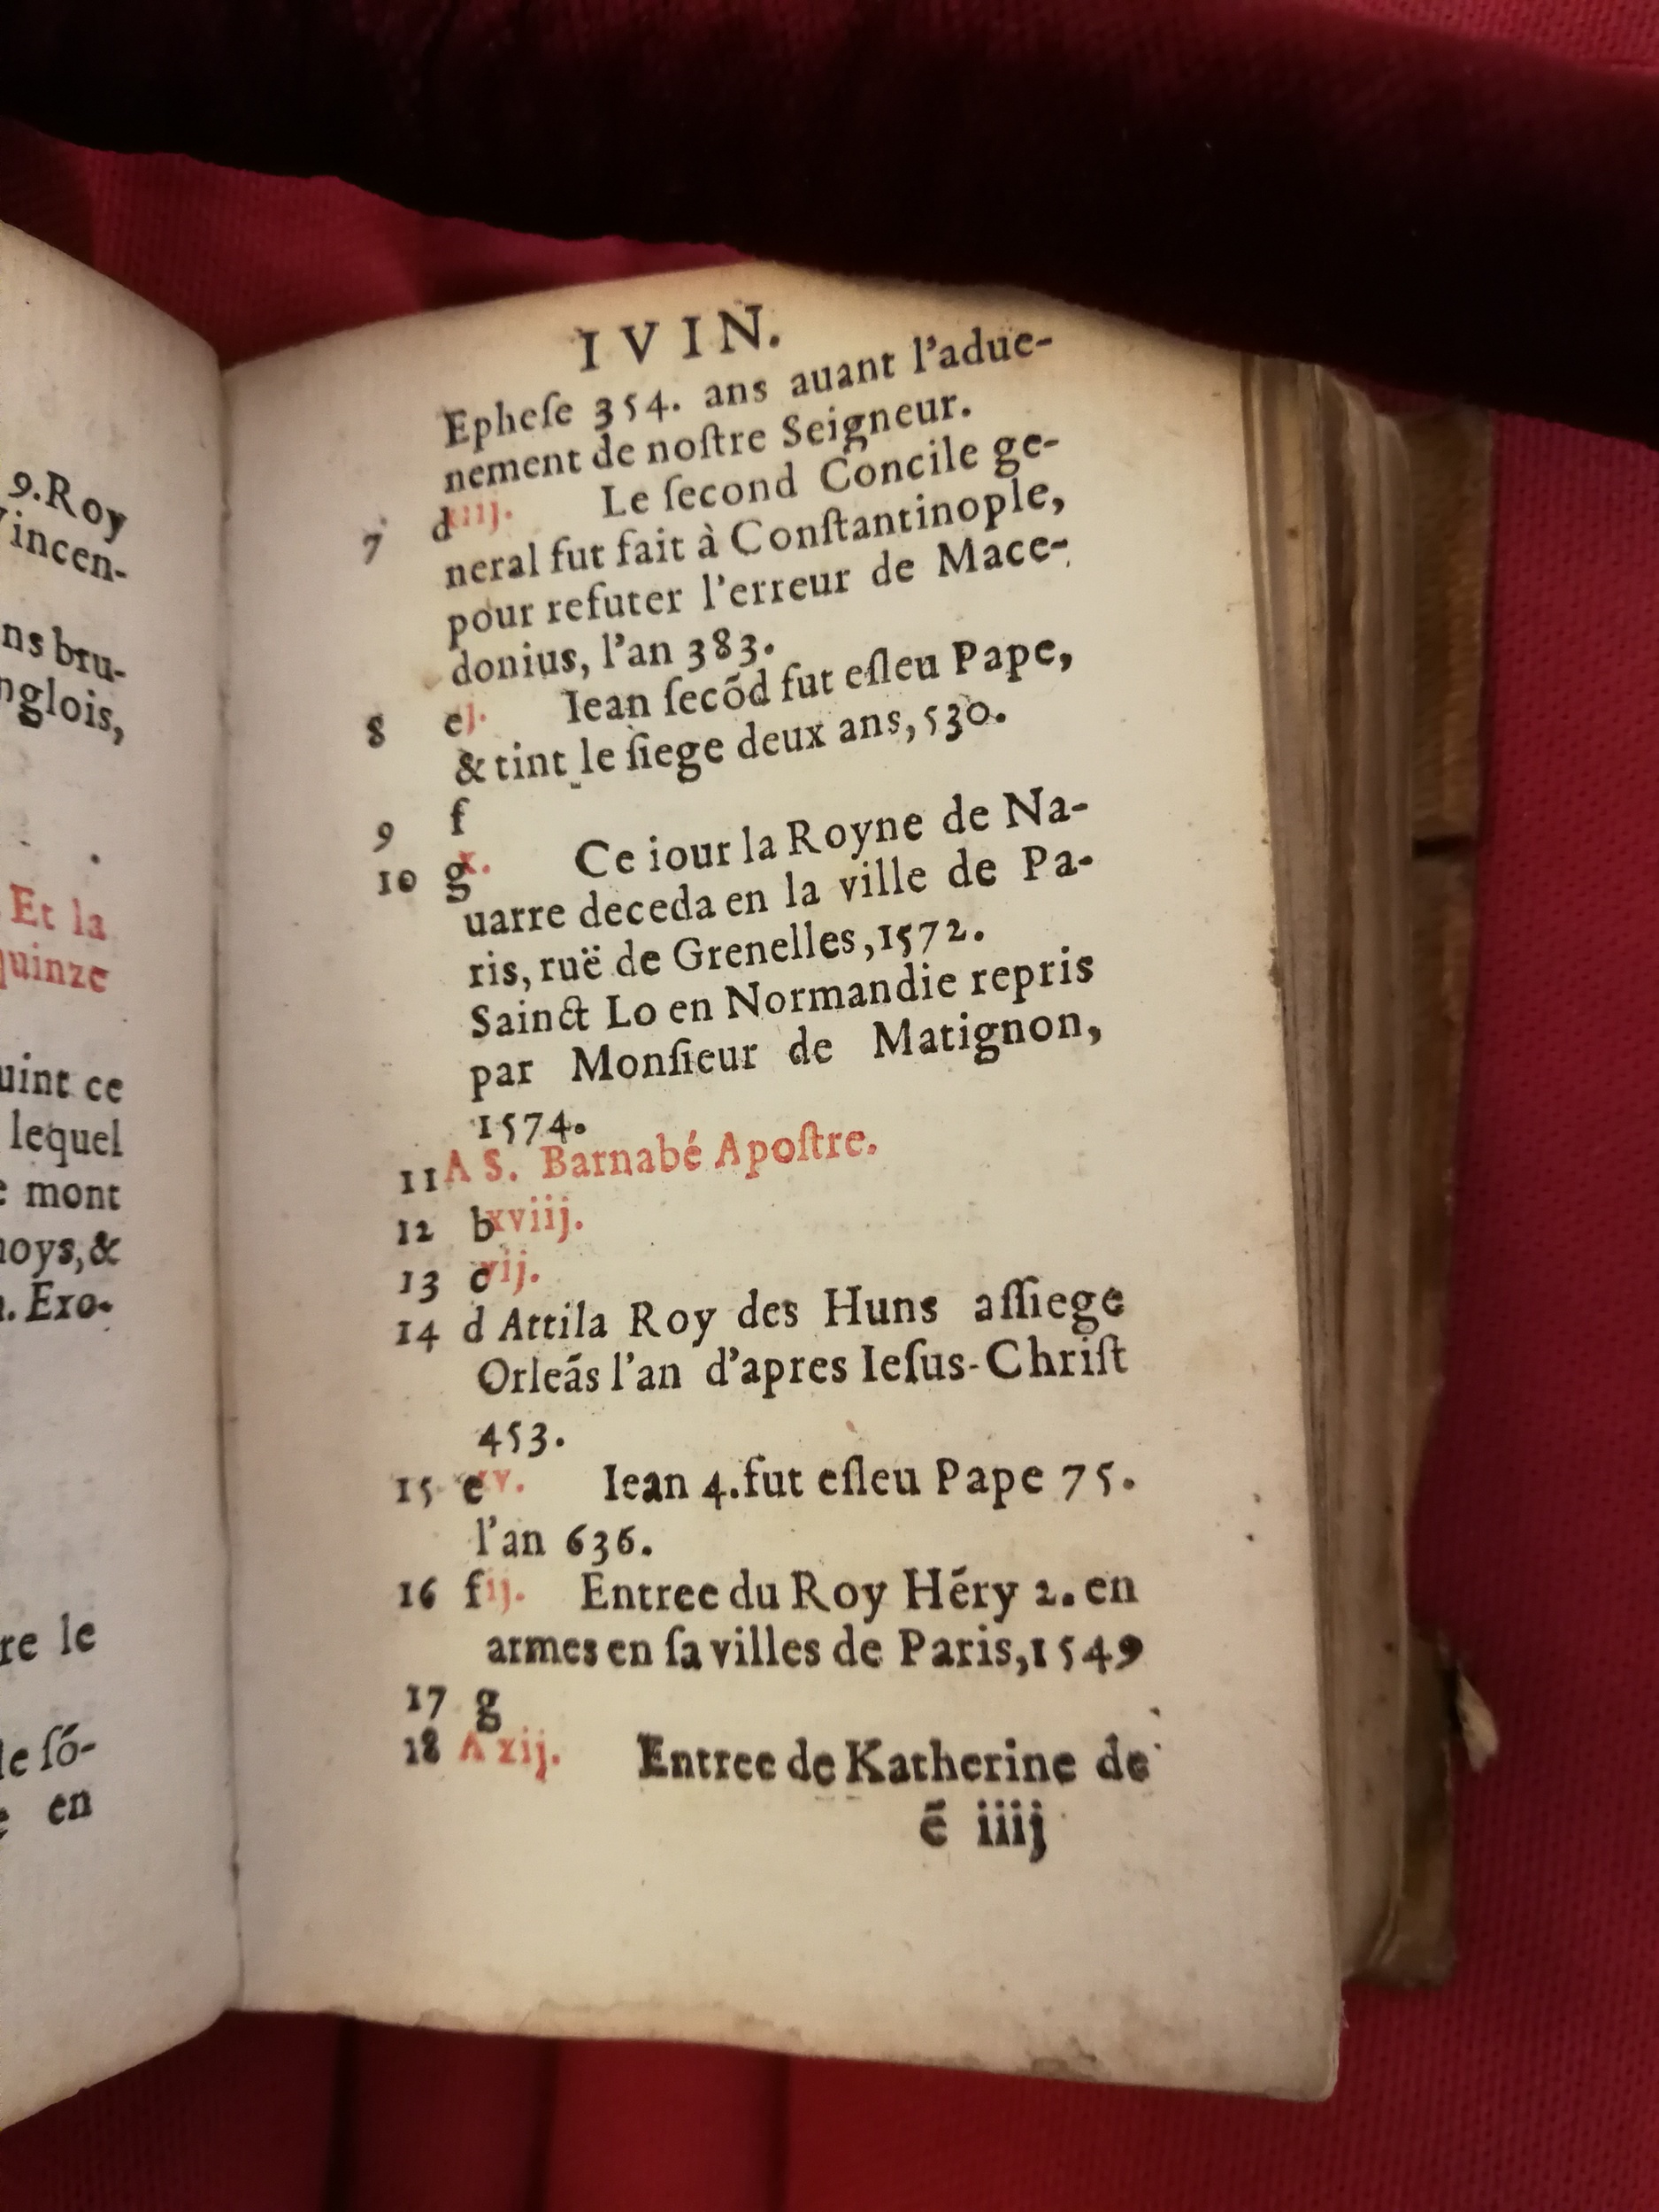 9.Roy
incen-
ns bru-
nglois,
Et la
quinze
uint ce
lequel
mont
oys, &
Exo-
re le
le ſó-
en
IVIN.
Epheſe 354. ans auant l'adue-
nement de noſtre Seigneur.
7 d iij. Le ſecond Concile ge-
neral fut fait à Conſtantinople,
pour refuter l'erreur de Mace-
donius, l'an 383.
8 e j. Iean ſecõd fut eſleu Pape,
& tint le ſiege deux ans, 530.
9 f
10 g x. Ce iour la Royne de Na-
uarre deceda en la ville de Pa-
ris, ruë de Grenelles, 1572.
Sainct Lo en Normandie repris
par Monſieur de Matignon,
1574.
11 A S. Barnabé Apoſtre.
12 b xviij.
13 c vij.
14 d Attila Roy des Huns aſſiege
Orleãs l'an d'apres Ieſus-Chriſt
453.
15 e xv. Iean 4. fut eſleu Pape 75.
l'an 636.
16 f ij. Entree du Roy Hẽry 2. en
armes en ſa villes de Paris, 1549
17 g
18 A xij. Entree de Katherine de
ẽ iiij